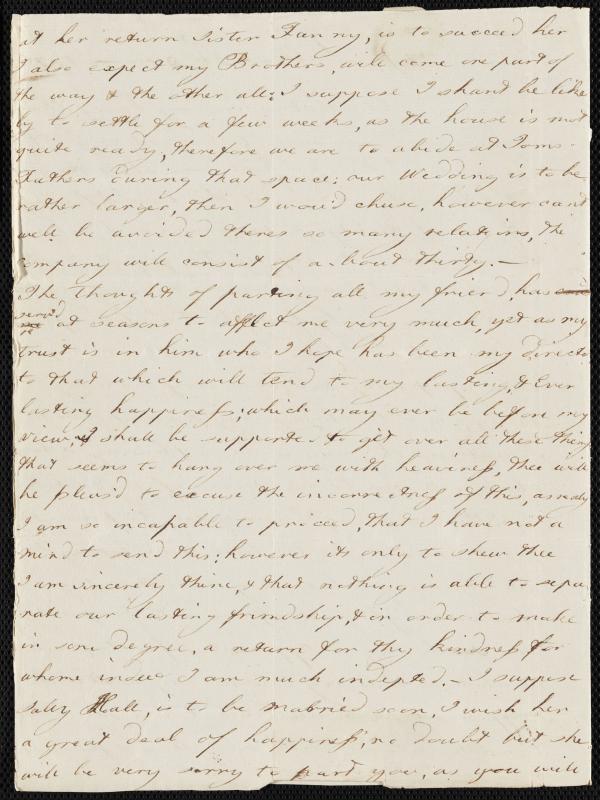 at her return Sister Fanny, is to succeed her
I also expect my Brothers, will come one part of
the way & the other all; I suppose I shan't be like
ly to settle for a few weeks, as the house is not
quite ready, therefore we are to abide at Toms
Fathers during that space; our Wedding is to be
rather larger, then I wou'd chuse, however can't
well be avoided theres so many relations, the
company will consist of a-bout thirty.—
The thoughts of parting all my friend, has
serv'd at seasons to afflict me very much, yet as my
trust is in him who I hope has been my directo
to that which will tend to my lasting, & Ever
lasting happiness; which may ever be before my
view, & I shall be supported to get over all these thing
that seems to hang over me with heaviness, thee will
be pleas'd to excuse the incorrectness of this, as realy
I am so incapable to proceed, that I have not a
mind to send this; however its only to shew thee
I am sincerely thine, & that nothing is able to sepa
rate our lasting friendship, & in order to make
in some degree, a return for thy kindness for
whome indeed I am much indepted.— I suppose
Sally Hall, is to be married soon, I wish her
a great deal of happiness, no doubt but she
will be very sorry to part you, as you will